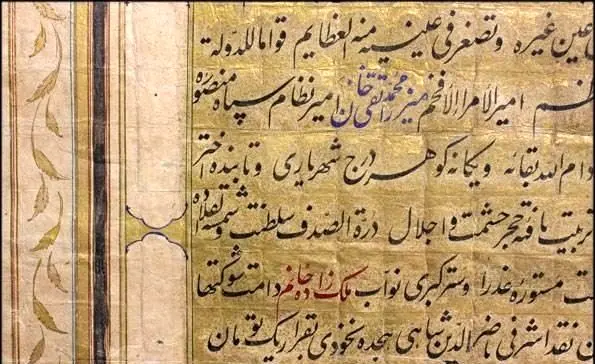 عین غیره و تصغر فی عینیه منه العظایم قواماً للدولة
امیر الامراء الافخم میرزا محمد تقی خان امیر نظام سپاه منصوره
دام الله بقائه و یگانه گوهر درج شهریاری و تابنده اختر
تربیت یافته حجر حشمت و اجلال درة الصدف سلطنت و شمسة القلاده
مستوره عذرا و ستر کبری نواب ملک زاده خانم دامت شوکتها
نقد اشرفی ناصر الدین شاهی هجده نخودی بقرار یک تومان